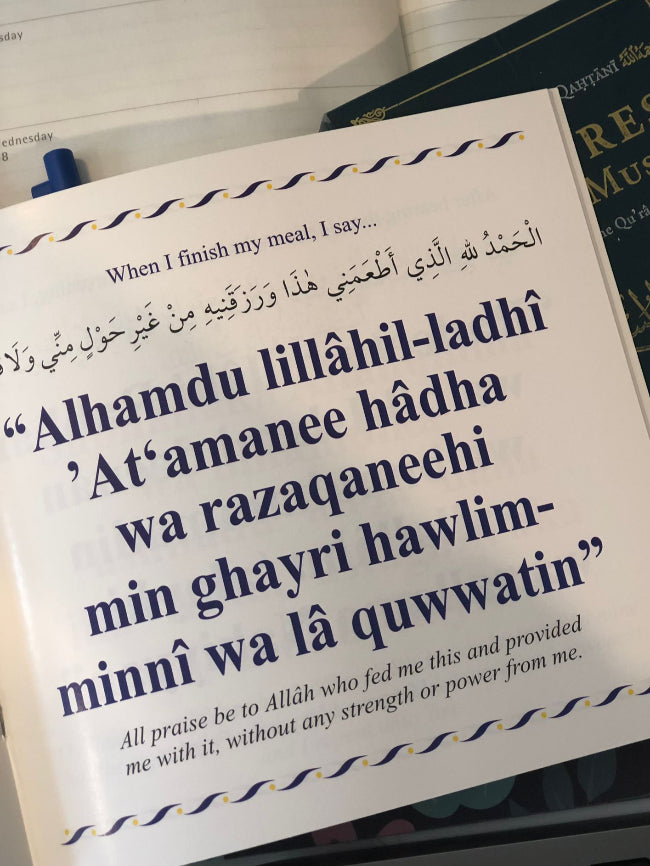 sday
ednesday
8
QAḤṬĀNĪ
RES
MUS
e Qu'râ
When I finish my meal, I say...
الْحَمْدُ لِلَّهِ الَّذِي أَطْعَمَنِي هٰذَا وَرَزَقَنِيهِ مِنْ غَيْرِ حَوْلٍ مِنِّي وَلَا
“Alhamdu lillâhil-ladhî
’At‘amanee hâdha
wa razaqaneehi
min ghayri hawlim-
minnî wa lâ quwwatin”
All praise be to Allâh who fed me this and provided
me with it, without any strength or power from me.